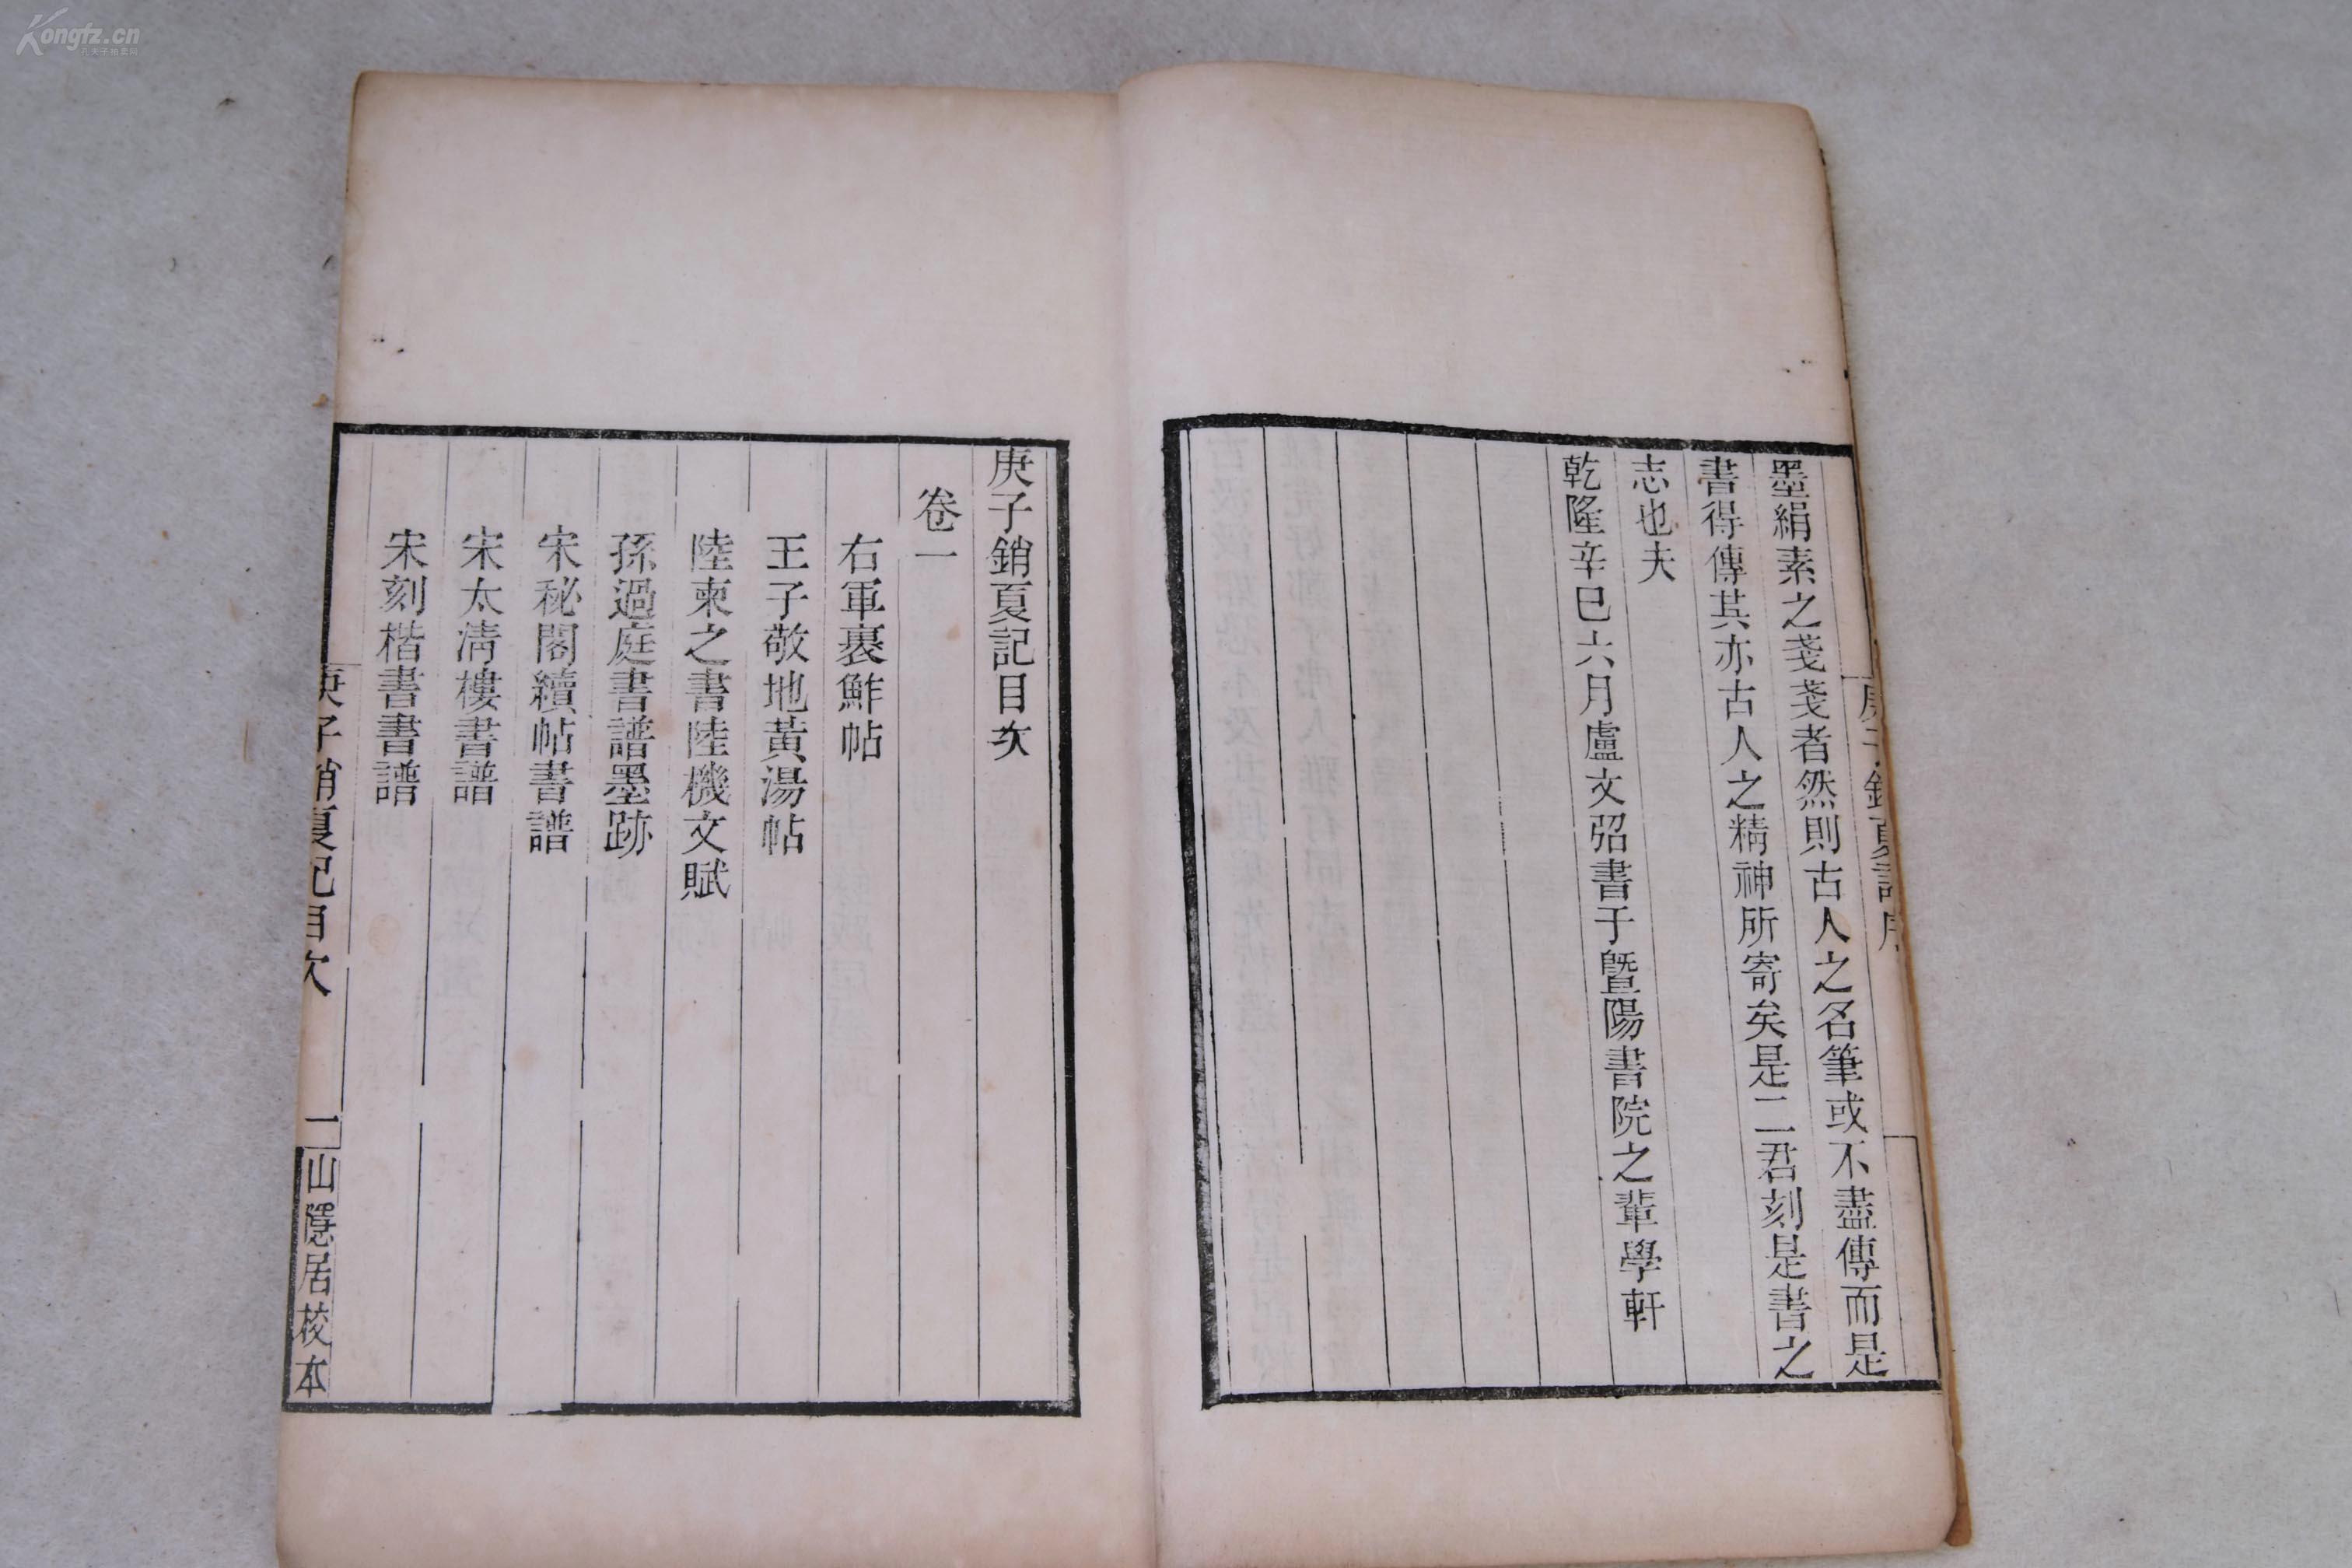 墨絹素之戔戔者然則古人之名筆或不盡傳而是
書得傳其亦古人之精神所寄矣是二君刻是書之
志也夫
乾隆辛巳六月盧文弨書于曁陽書院之輩學軒
庚子銷夏記序
庚子銷夏記目次
卷一
右軍裹鮓帖
王子敬地黃湯帖
陸柬之書陸機文賦
孫過庭書譜墨跡
宋秘閣續帖書譜
宋太淸樓書譜
宋刻楷書書譜
庚子銷夏記目次
一
山隱居校本
Kongfz.cn